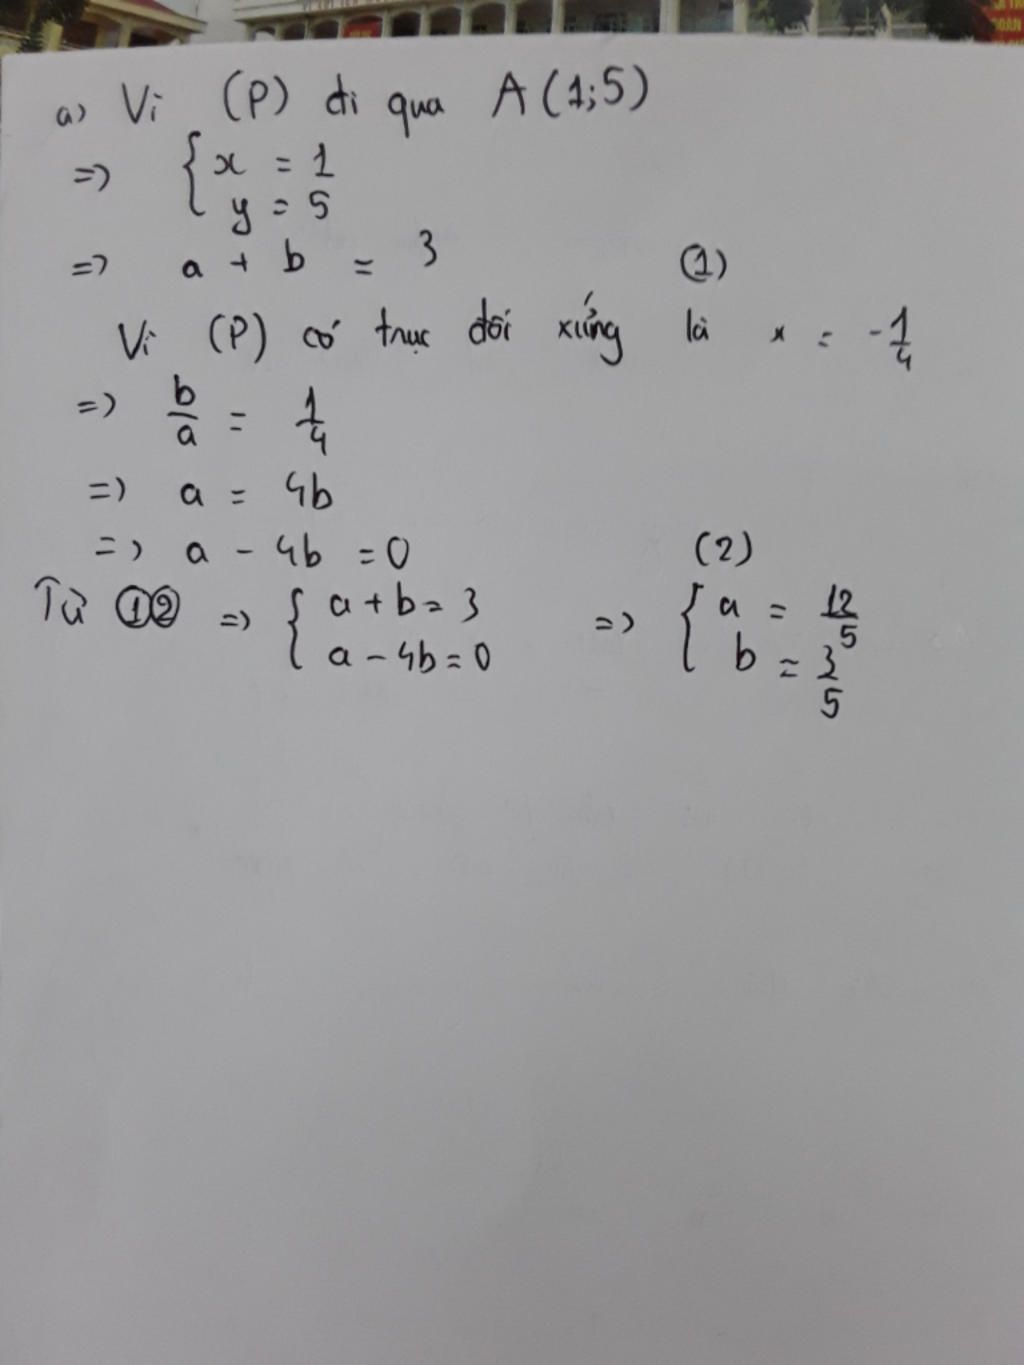 a) Vì (P) đi qua A(1;5)
=> { x = 1
y = 5
=> a + b = 3 (1)
Vì (P) có trục đối xứng là x = -1/4
=> b/a = 1/4
=> a = 4b
=> a - 4b = 0 (2)
Từ ①② => { a + b = 3 => { a = 12/5
a - 4b = 0 b = 3/5